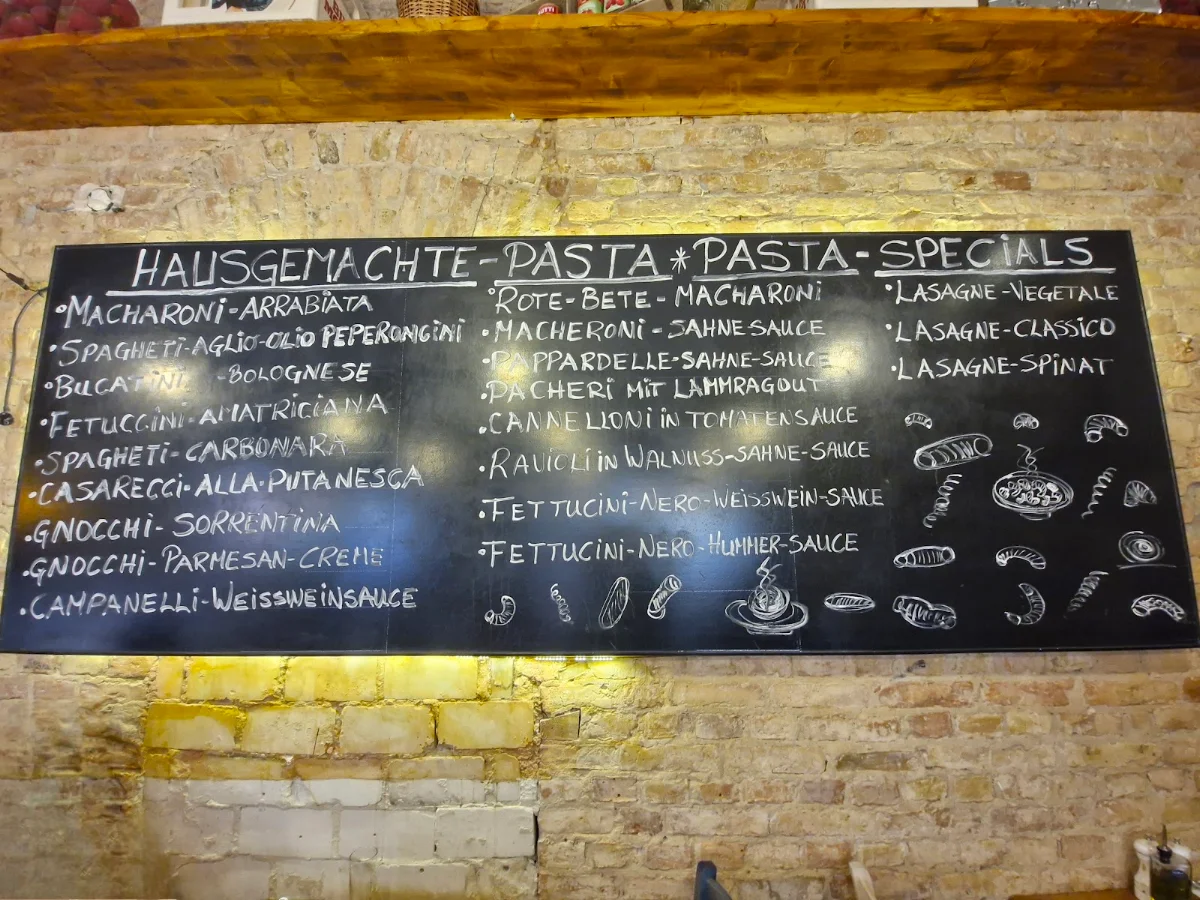 HAUSGEMACHTE-PASTA*PASTA-SPECIALS
•MACHARONI-ARRABIATA
•SPAGHETI-AGLIO-OLIO PEPERONGINI
•BUCATINI -BOLOGNESE
•FETUCCINI-AMATRICIANA
•SPAGHETI-CARBONARA
•CASARECCI-ALLA-PUTANESCA
•GNOCCHI-SORRENTINA
•GNOCCHI-PARMESAN-CREME
•CAMPANELLI-WEISSWEINSAUCE
•ROTE-BETE-MACHARONI
•MACHERONI-SAHNESAUCE
•PAPPARDELLE-SAHNE-SAUCE
•PACHERI MIT LAMMRAGOUT
•CANNELLONI IN TOMATENSAUCE
•RAVIOLI IN WALNUSS-SAHNE-SAUCE
•FETTUCINI-NERO-WEISSWEIN-SAUCE
•FETTUCINI-NERO-HUMMER-SAUCE
•LASAGNE-VEGETALE
•LASAGNE-CLASSICO
•LASAGNE-SPINAT